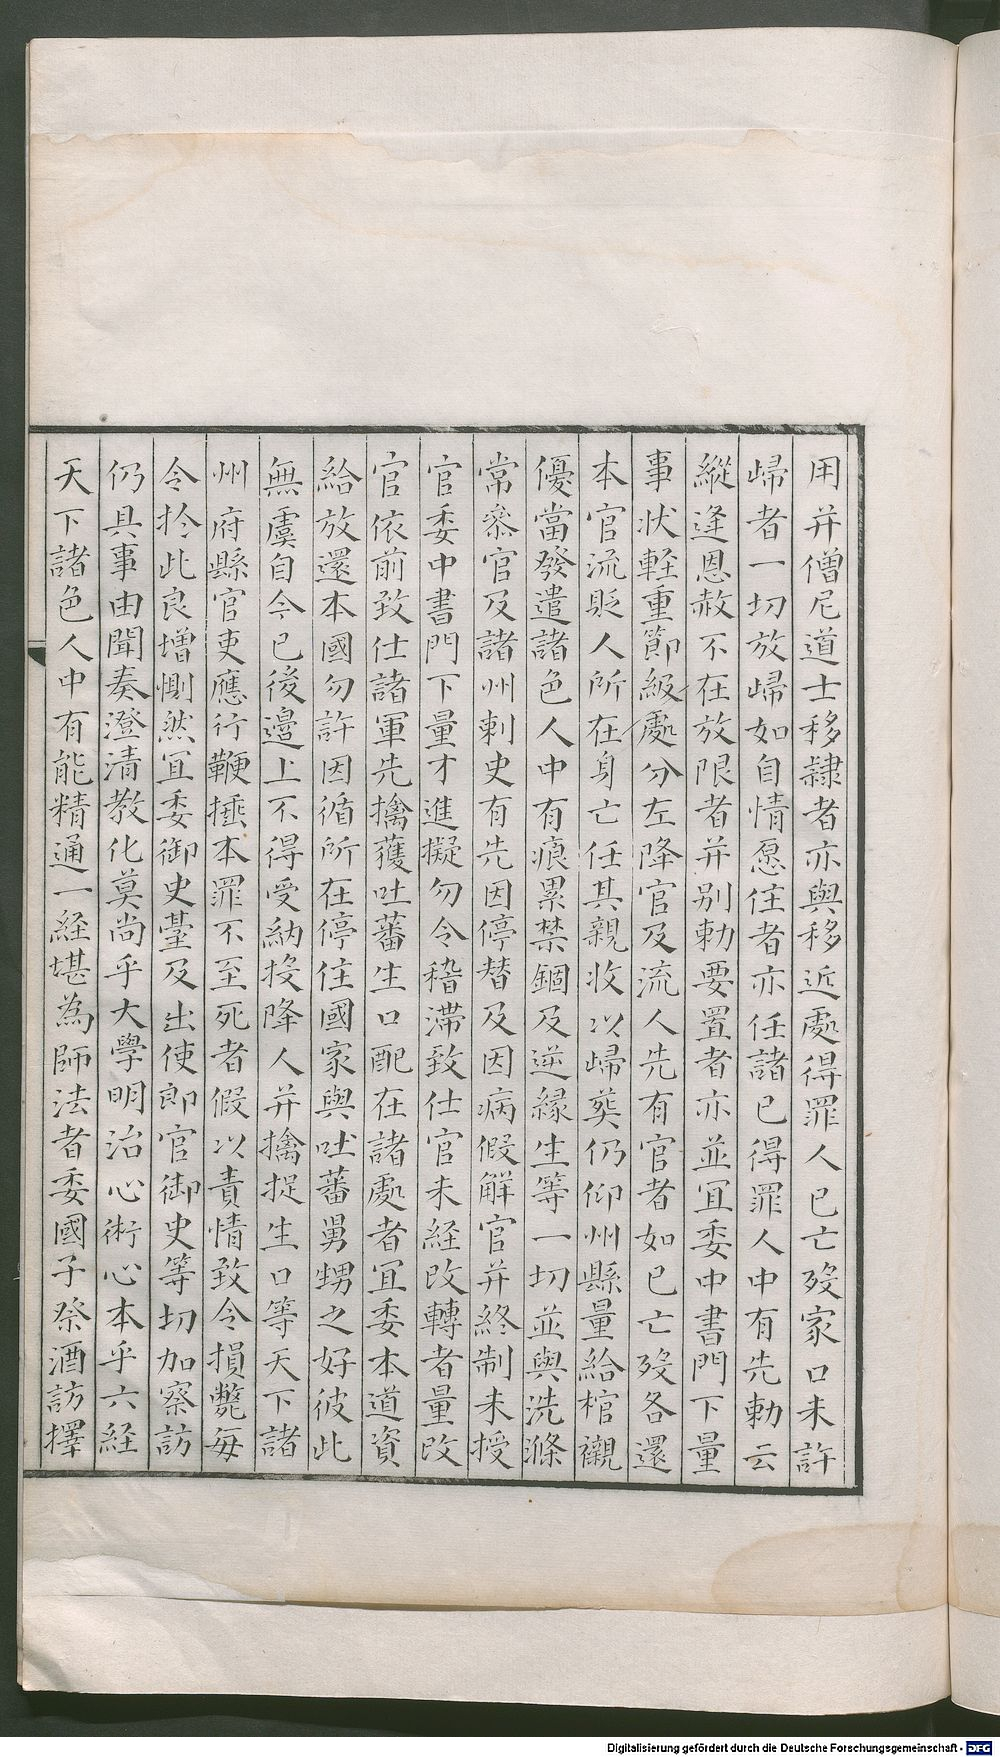 用并僧尼道士移隷者亦與移近處得罪人已亡歿家口未許
歸者一切放歸如自情愿住者亦任諸已得罪人中有先勅云
縱逢恩赦不在放限者并别勅要置者亦並冝委中書門下量
事狀輕重節級處分左降官及流人先有官者如已亡歿各還
本官流貶人所在身亡任其親收以歸葬仍仰州縣量給棺櫬
優當發遣諸色人中有痕累禁錮及逆縁生等一切並與洗滌
常叅官及諸州刺史有先因停替及因病假解官并終制未授
官委中書門下量才進擬勿令稽滯致仕官未経改轉者量改
官依前致仕諸軍先擒獲吐蕃生口配在諸處者冝委本道資
給放還本國勿許因循所在停住國家與吐蕃舅甥之好彼此
無虞自今已後邊上不得受納投降人并擒捉生口等天下諸
州府縣官吏應行鞭捶本罪不至死者假以責情致令損斃每
令於此良増惻然冝委御史䑓及出使郎官御史等切加察訪
仍具事由聞奏澄清教化莫尚乎大學明治心術心本乎六経
天下諸色人中有能精通一経堪為師法者委國子祭酒訪擇
Digitalisierung gefördert durch die Deutsche Forschungsgemeinschaft - DFG